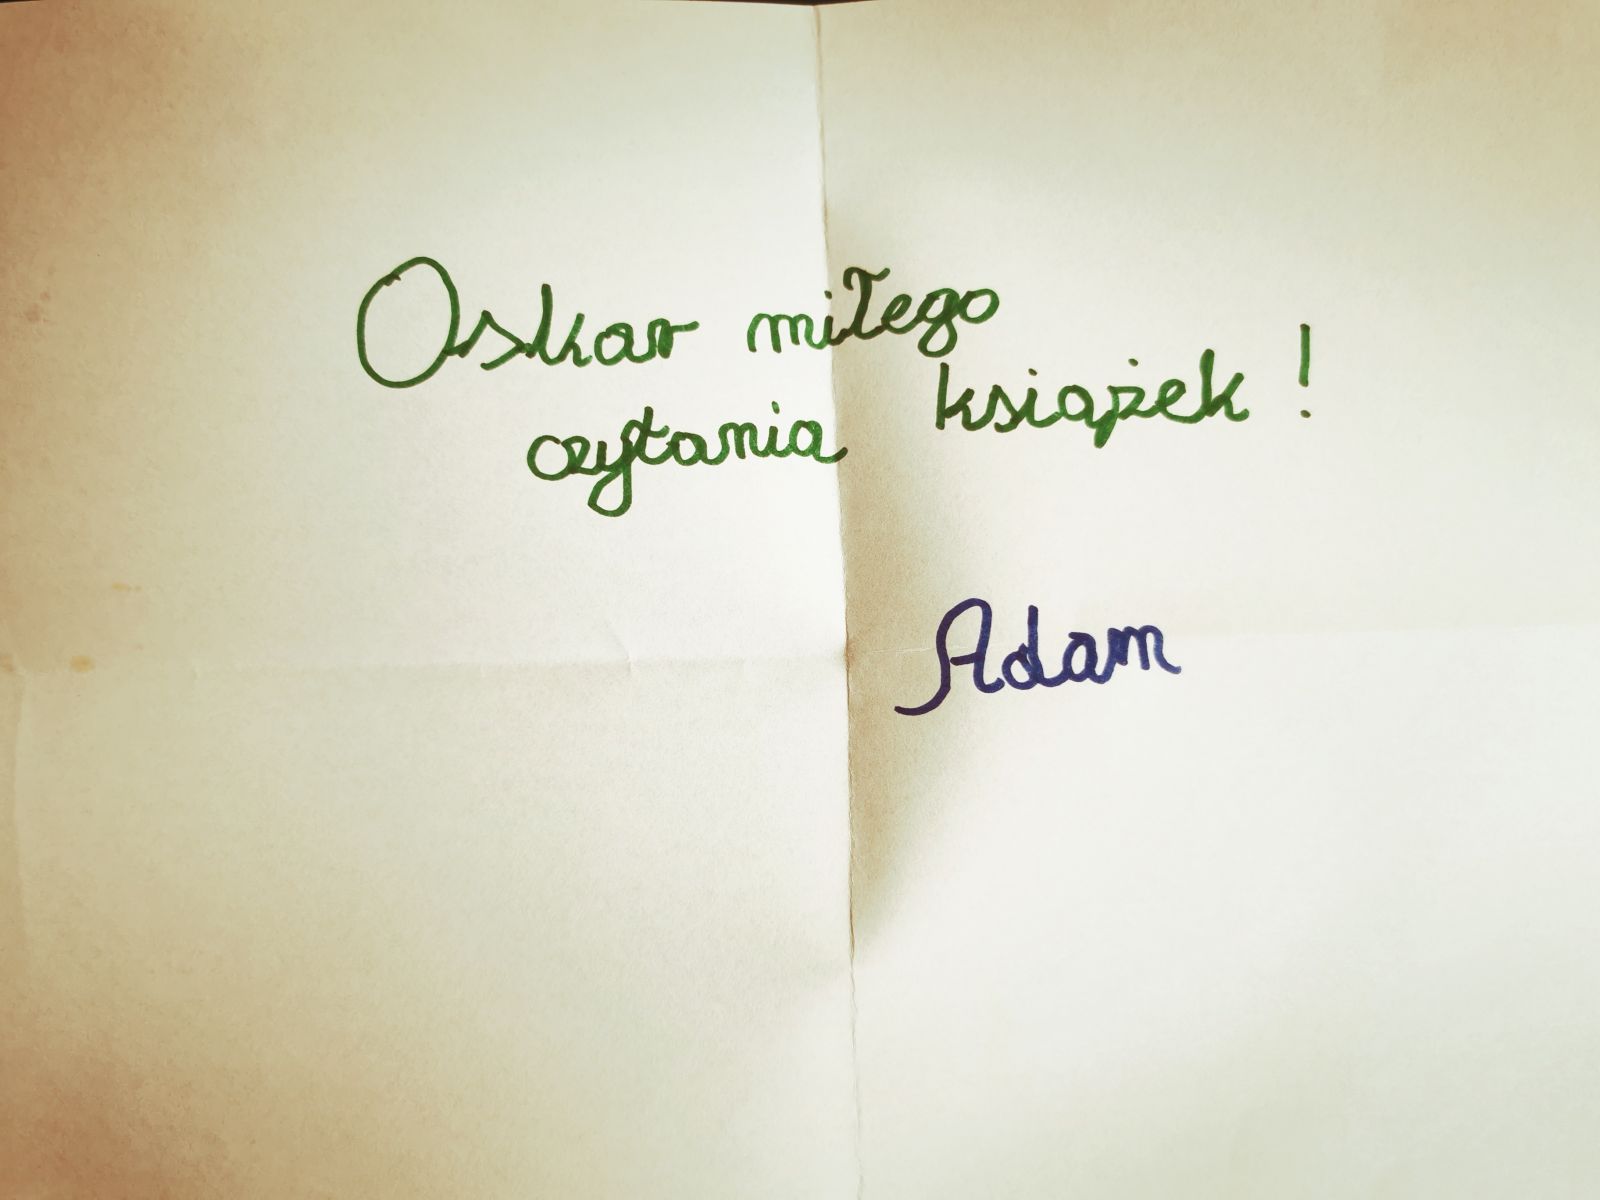 Oskar miłego
czytania książek!
Adam